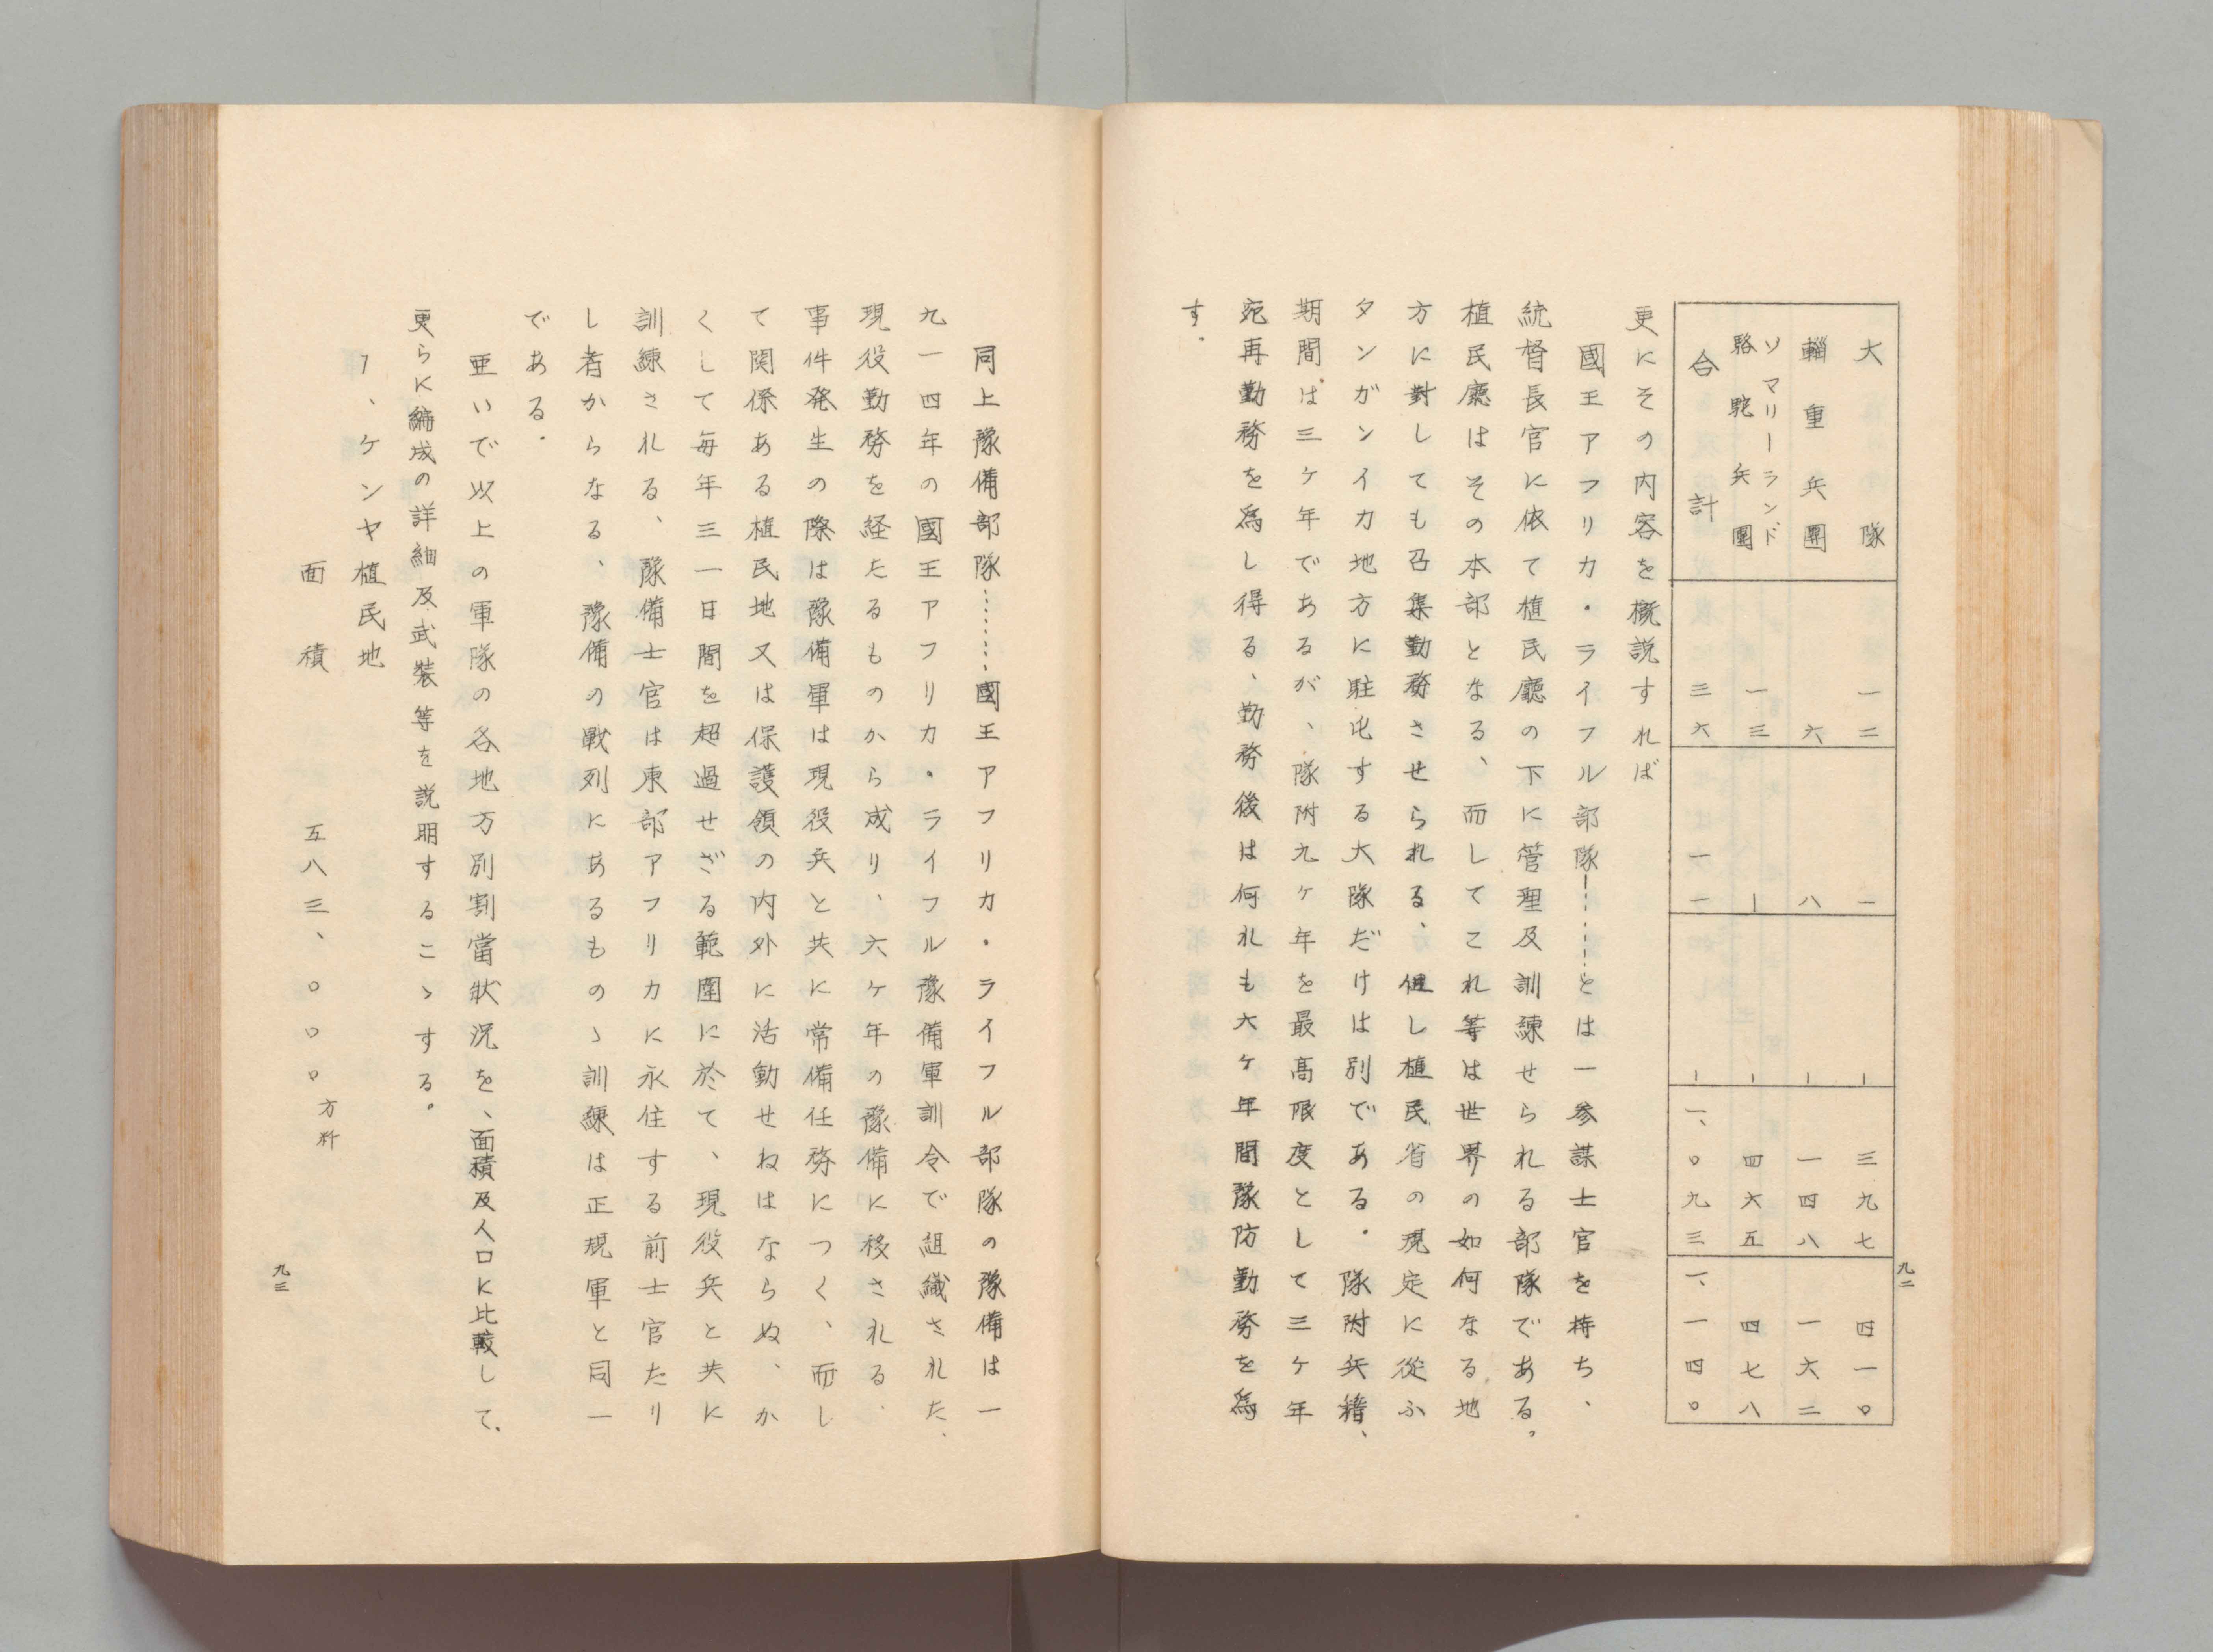 九二
大隊 一二 一 ー 三九七 四一〇
輜重兵團 六 八 ー 一四八 一六二
ソマリーランド
駱駝兵團 一三 ー ー 四六五 四七八
合計 三六 一一 ー 一、〇九三 一、一四〇
更にその内容を概説すれば
國王アフリカ・ライフル部隊………とは一参謀士官を持ち、
統督長官に依て植民廳の下に管理及訓練せられる部隊である。
植民廳はその本部となる、而してこれ等は世界の如何なる地
方に對しても召集勤務させられる、但し植民省の規定に從ふ
タンガンイカ地方に駐屯する大隊だけは別である。隊附兵籍、
期間は三ヶ年であるが、隊附九ヶ年を最高限度として三ヶ年
宛再勤務を爲し得る、勤務後は何れも六ヶ年間豫防勤務を爲
す。
同上豫備部隊………國王アフリカ・ライフル部隊の豫備は一
九一四年の國王アフリカ・ライフル豫備軍訓令で組織された、
現役勤務を経たるものから成り、六ヶ年の豫備に移される、
事件発生の際は豫備軍は現役兵と共に常備任務につく、而し
て関係ある植民地又は保護領の内外に活動せねはならぬ、か
くして毎年三一日間を超過せざる範圍に於て、現役兵と共に
訓練される、豫備士官は東部アフリカに永住する前士官たり
し者からなる、豫備の戰列にあるものゝ訓練は正規軍と同一
である。
亜いで以上の軍隊の各地方別割當狀況を、面積及人口に比較して、
更らに編成の詳細及武裝等を説明するこゝする。
1、ケンヤ植民地
面積 五八三、〇〇〇方粁
九三